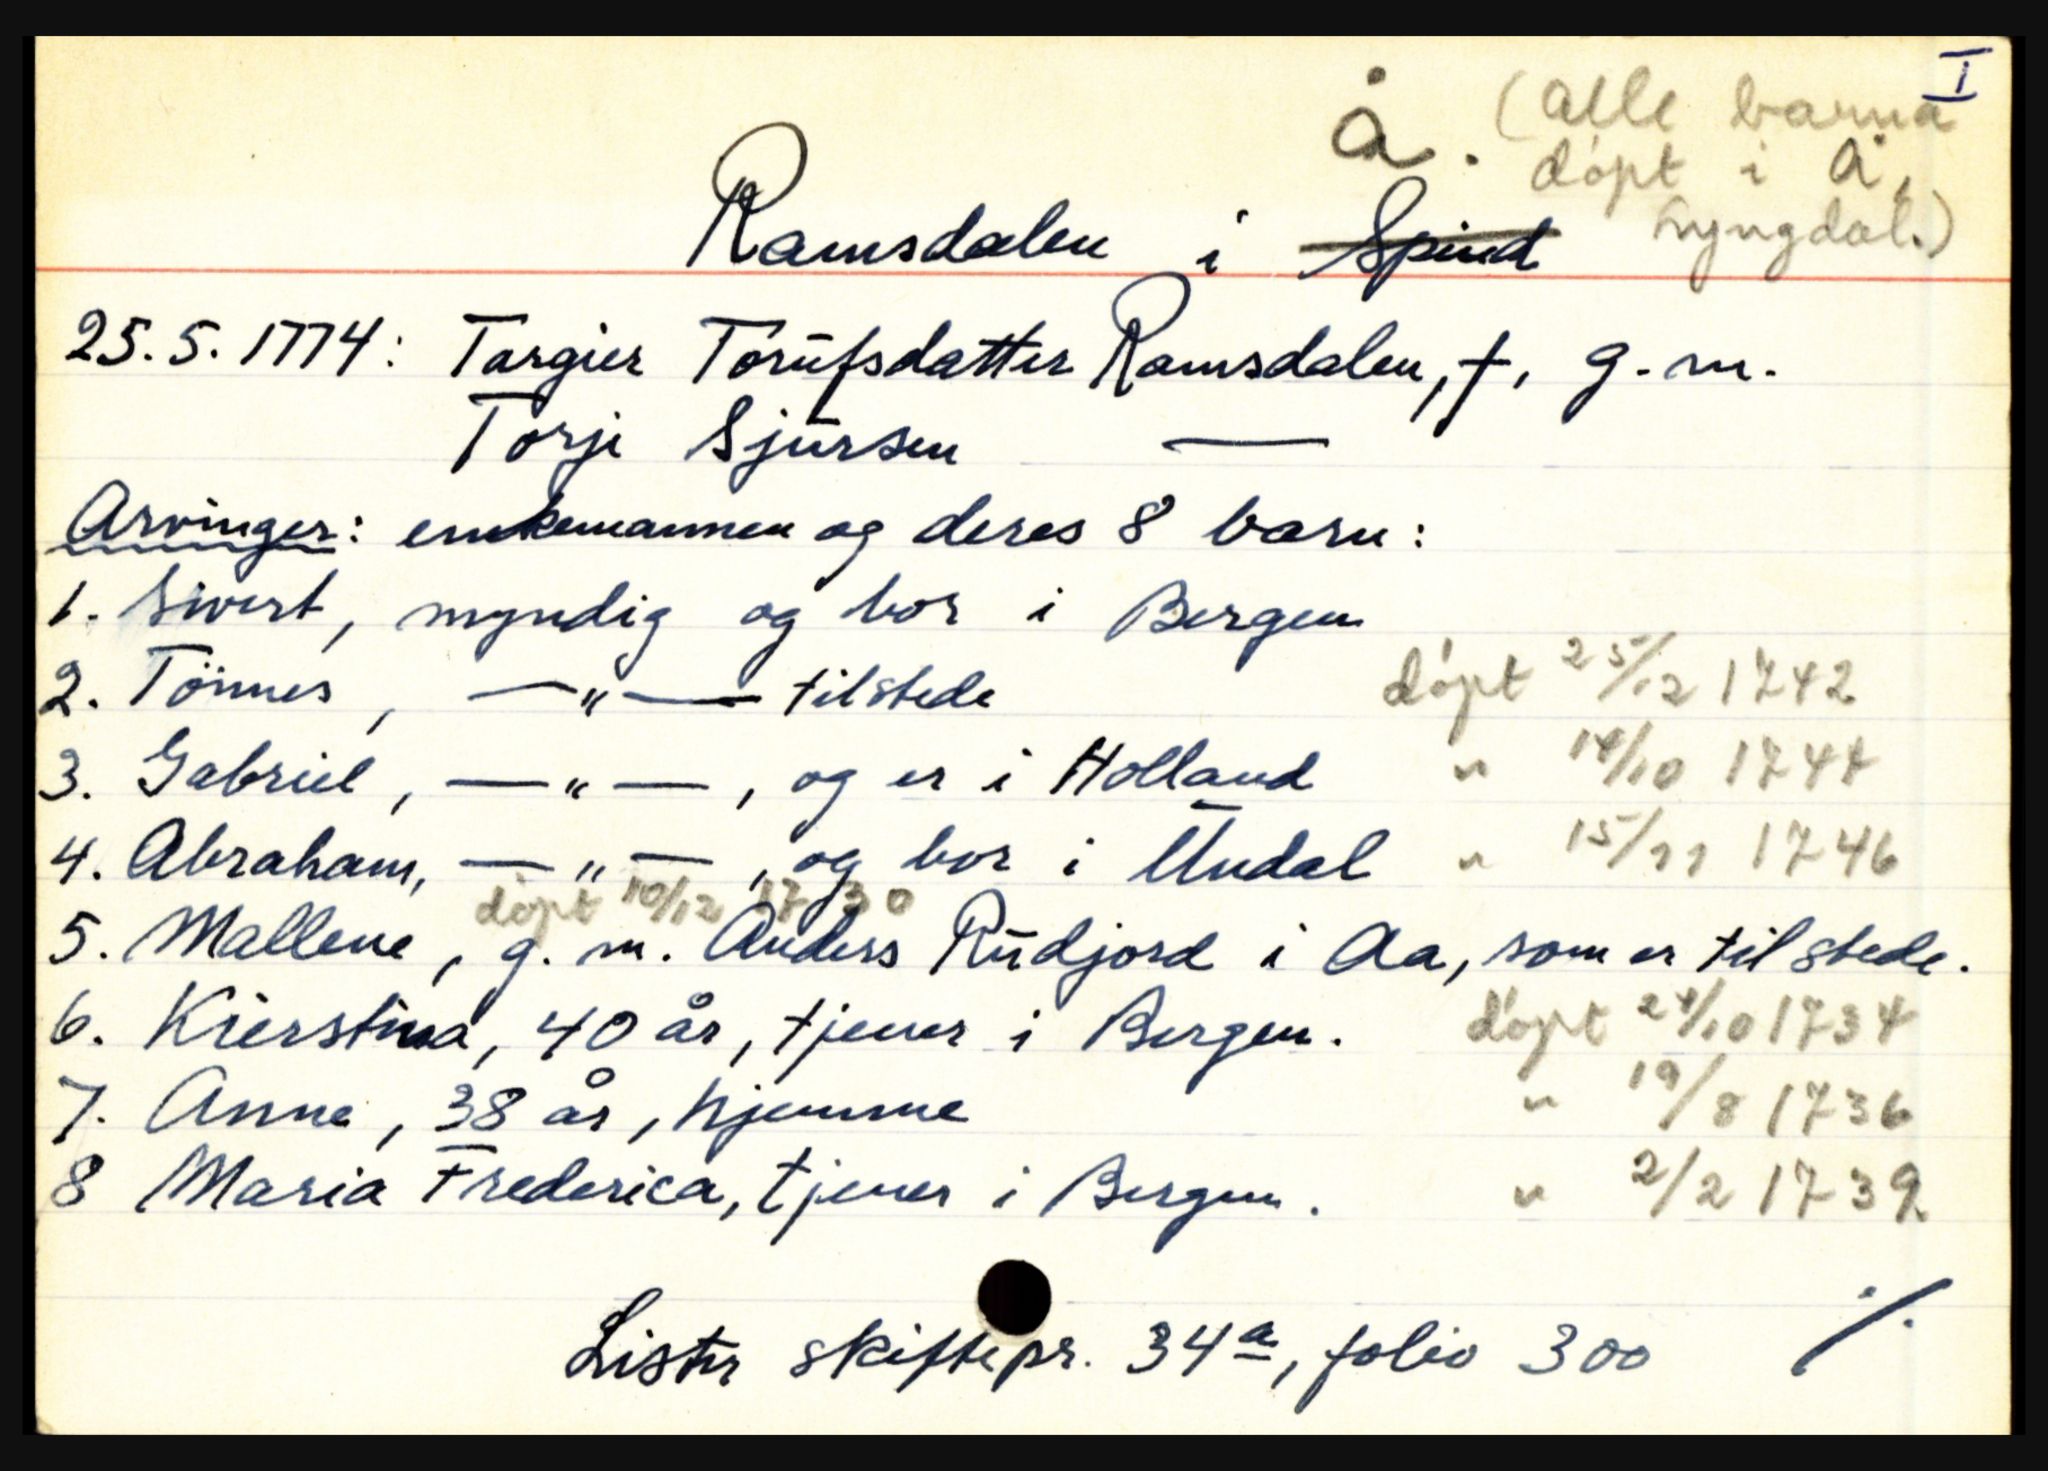 I
Å. (alle barna
döpt i Å,
Lyngdal.)
Ramsdalen i Spind
25.5.1774: Targier Torufsdatter Ramsdalen, †, g.m.
Torje Sjursen —
Arvinger: enkemannen og deres 8 barn:
1. Sivert, myndig og bor i Bergen
2. Tönnes, —"— tilstede döpt 25/12 1742
3. Gabriel, —"—, og er i Holland " 14/10 1744
4. Abraham, —"—, og bor i Undal " 15/11 1746
döpt 10/12 1730
5. Mallene, g.m. Anders Rudjord i Aa, som er tilstede.
6. Kierstina, 40 år, tjener i Bergen. döpt 24/10 1734
7. Anne, 38 år, hjemme " 19/8 1736
8 Maria Frederica, tjener i Bergen. " 2/2 1739
Lister skiftepr. 34a, folio 300 ./.